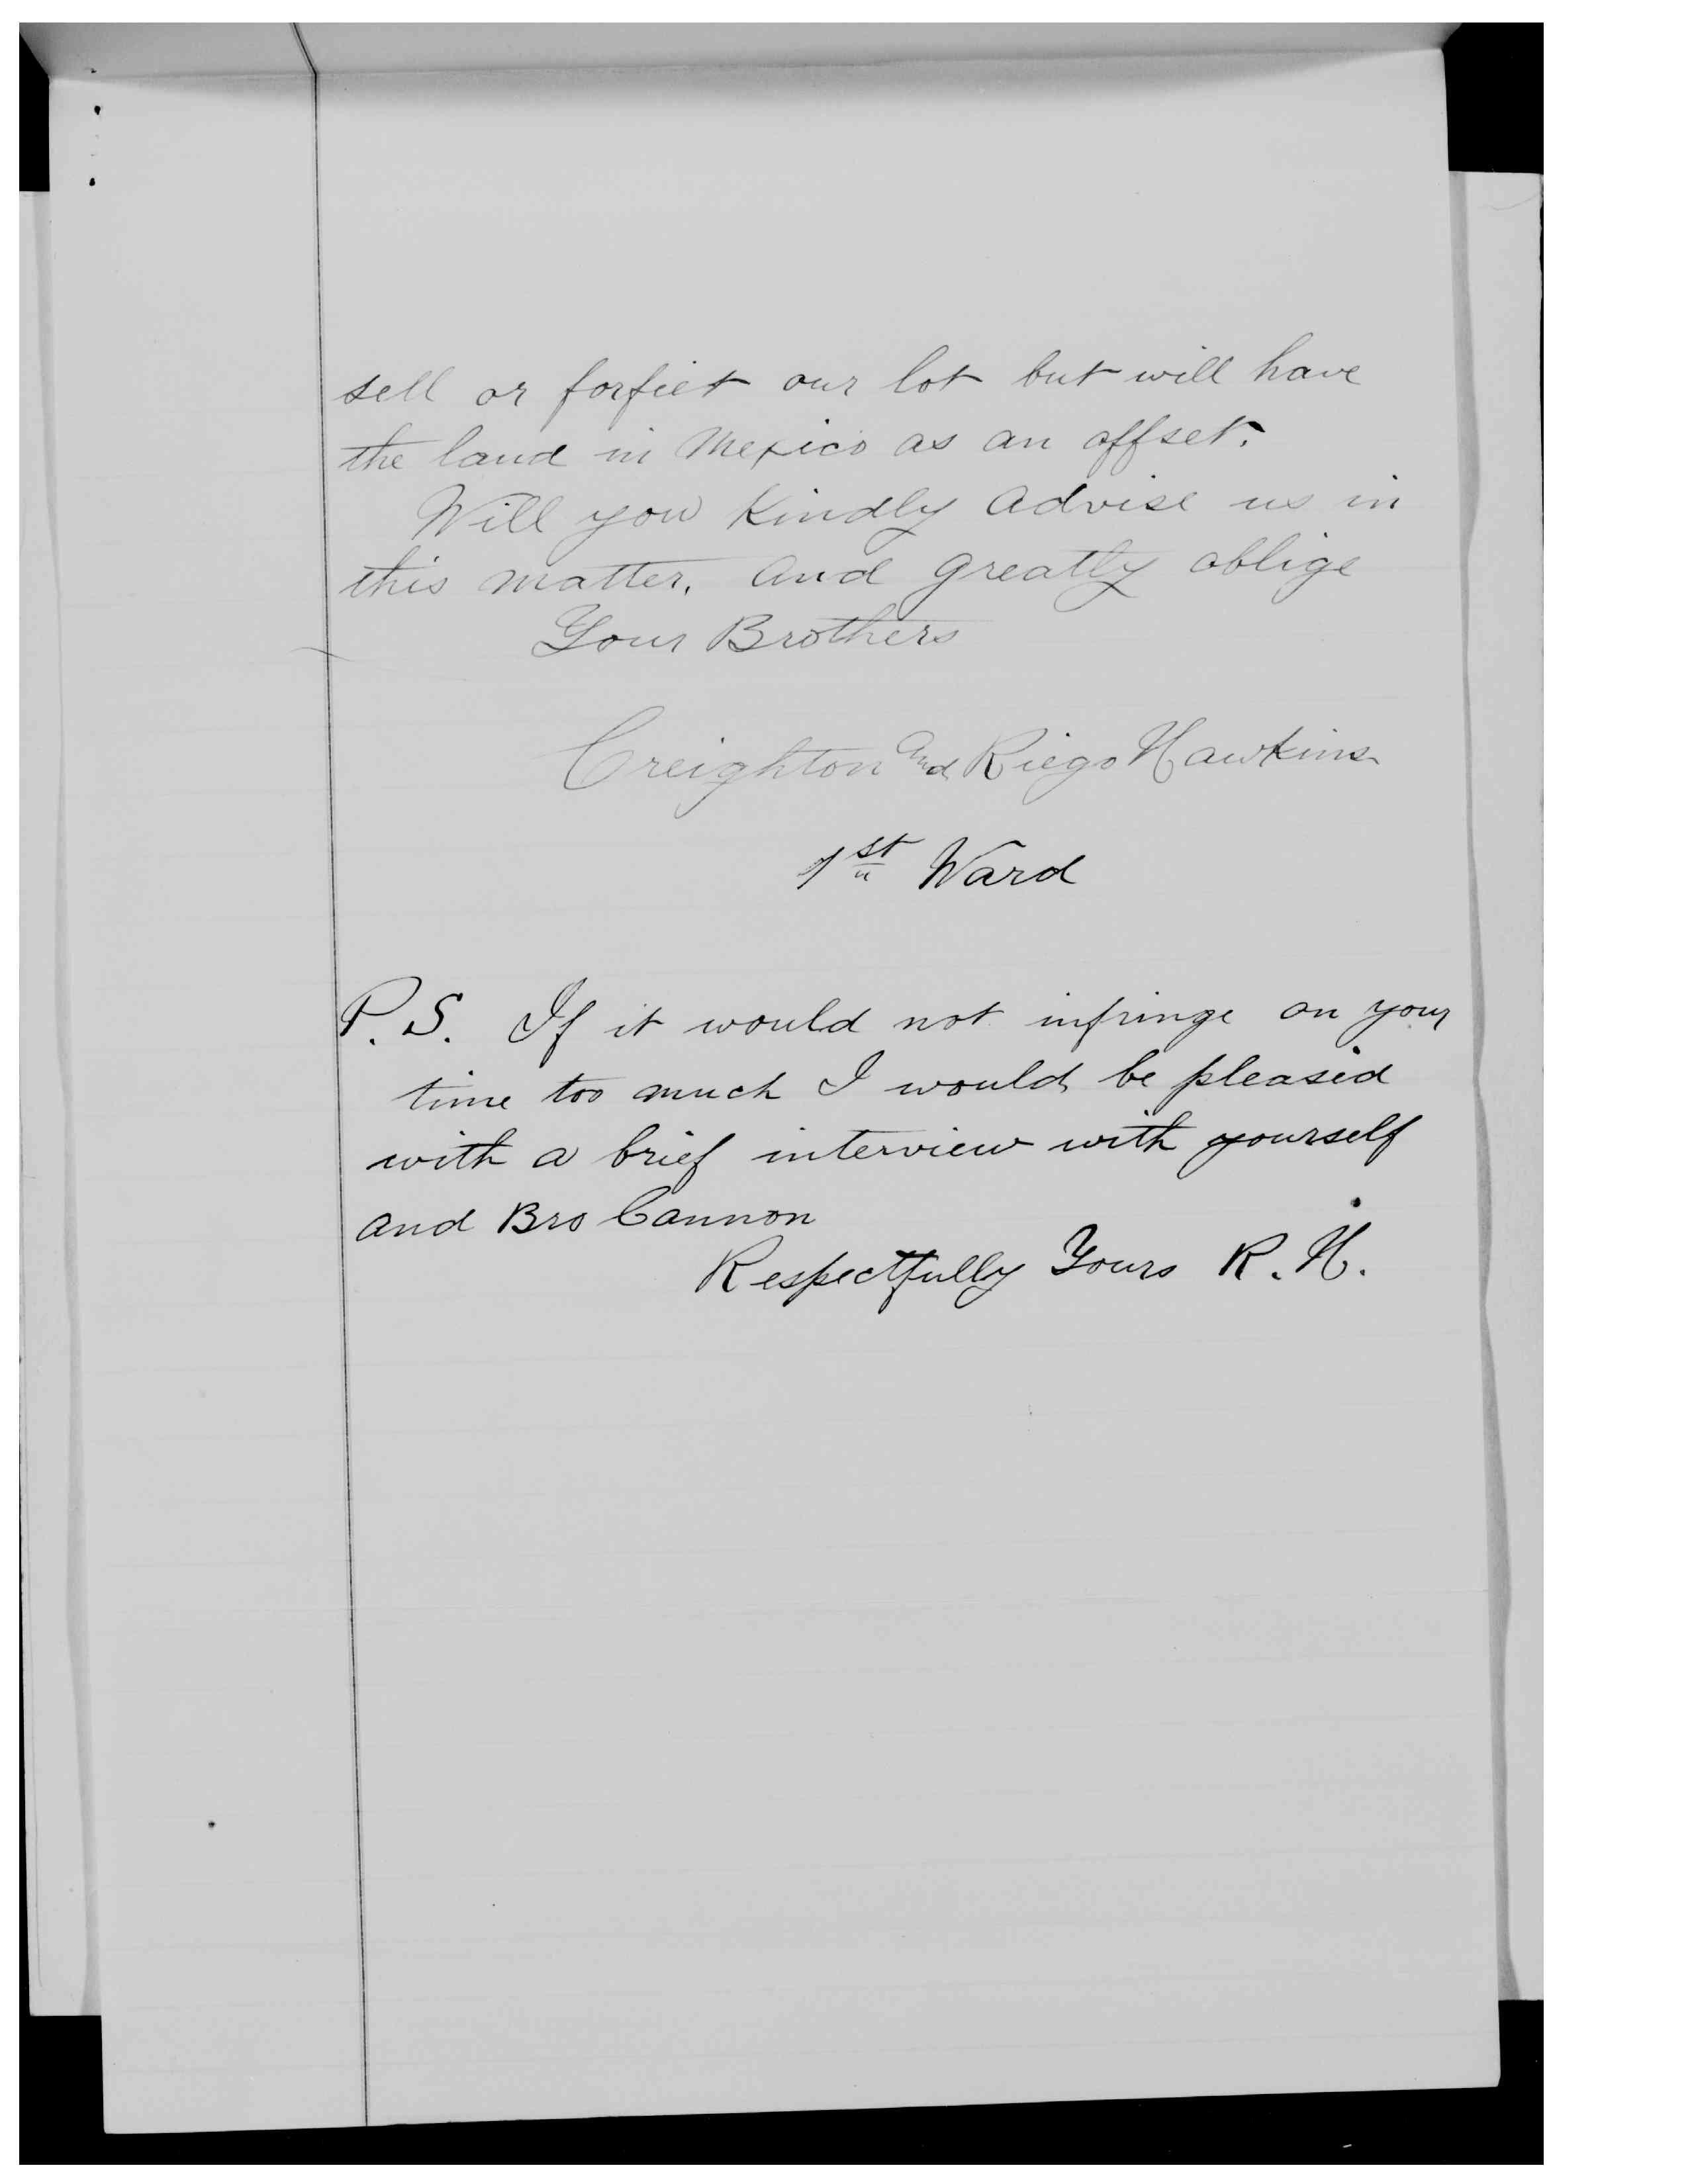 sell or forfiet our lot but will have
the land in Mexico as an offset.
Will you Kindly Advise us in
this matter. And greatly oblige
Your Brothers
Creighton and Riego Hawkins
1st Ward
P.S. If it would not infringe on your
time too much I would be pleased
with a brief interview with yourself
and Bro Cannon
Respectfully Yours R. H.